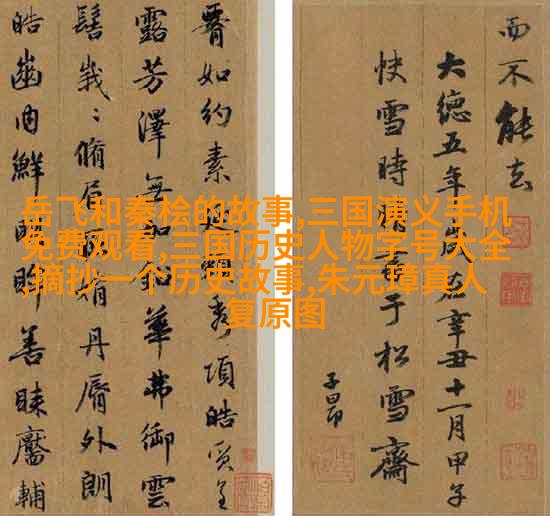 如約素延頸秀項皓質呈
露芳澤無加鉛華弗御雲
髻峩〻脩眉聯娟丹脣外朗
皓齒内鮮明眸善睞靨輔
而不能去
大德五年歲在辛丑十一月甲子
快雪時晴書于松雪齋
子昂
岳飞和秦桧的故事,三国演义手机
免费观看,三国历史人物字号大全
,摘抄一个历史故事,朱元璋真人
复原图